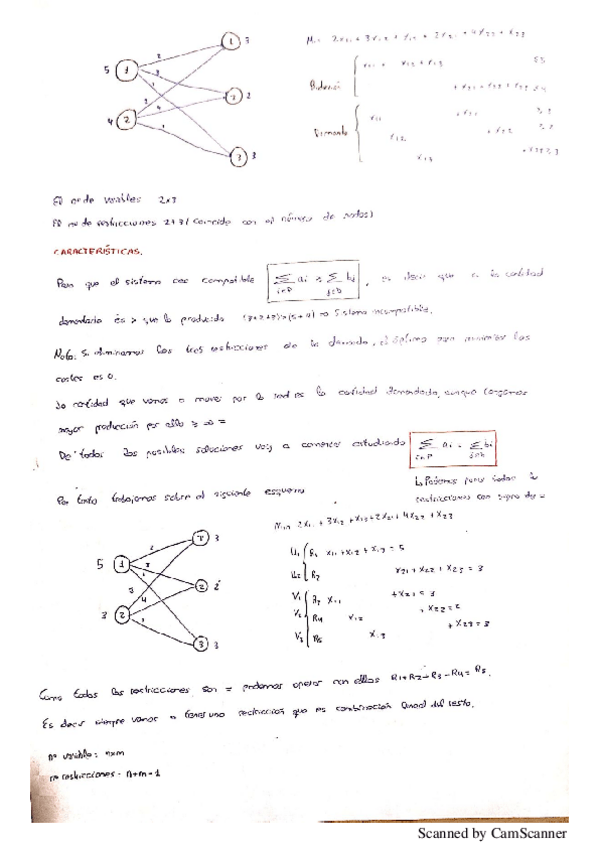 Min 2x11 + 3x12 + x13 + 2x21 + 4x22 + x23
x11 + x12 + x13 ≤5
+ x21 + x22 + x23 ≤4
Demanda
x11 + x21 ≥3
x12 + x22 ≥2
x13 + x23 ≥3
5 1 2 3 1 1 3
4 2 3 4 1 2 2
3 3
El nº de variables 2x3
El nº de restricciones 2+3 (coincide con el número de nodos)
CARACTERÍSTICAS.
Para que el sistema sea compatible Σ ai ≥ Σ bi , es decir que si la cantidad
i∈P j∈D
demandada es > que la producida ⇒ Sistema incompatible.
Nota: Si eliminamos las tres restricciones de la demanda, el óptimo para minimizar los
costes es 0.
La cantidad que vamos a mover por la red es la cantidad demandada, aunque tengamos
mayor producción por ello ≥ ⇒ =
De todas las posibles soluciones voy a comenzar estudiando Σ ai = Σ bi
i∈P j∈D
↳ Podemos poner todas las
restricciones con signo de =
Por tanto trabajamos sobre el siguiente esquema
Min 2x11 + 3x12 + x13 + 2x21 + 4x22 + x23
U1 R1 x11 + x12 + x13 = 5
U2 R2 x21 + x22 + x23 = 3
V1 R3 x11 + x21 = 3
V2 R4 x12 + x22 = 2
V3 R5 x13 + x23 = 3
5 1 2 3 1 3
3 2 3 4 1 2 2
3 3
Como todas las restricciones son = podemos operar con ellas R1+R2-R3-R4=R5.
Es decir siempre vamos a tener una restricción que es combinación lineal del resto.
nº variable: nxm
nº restricciones: n+m-1
Scanned by CamScanner